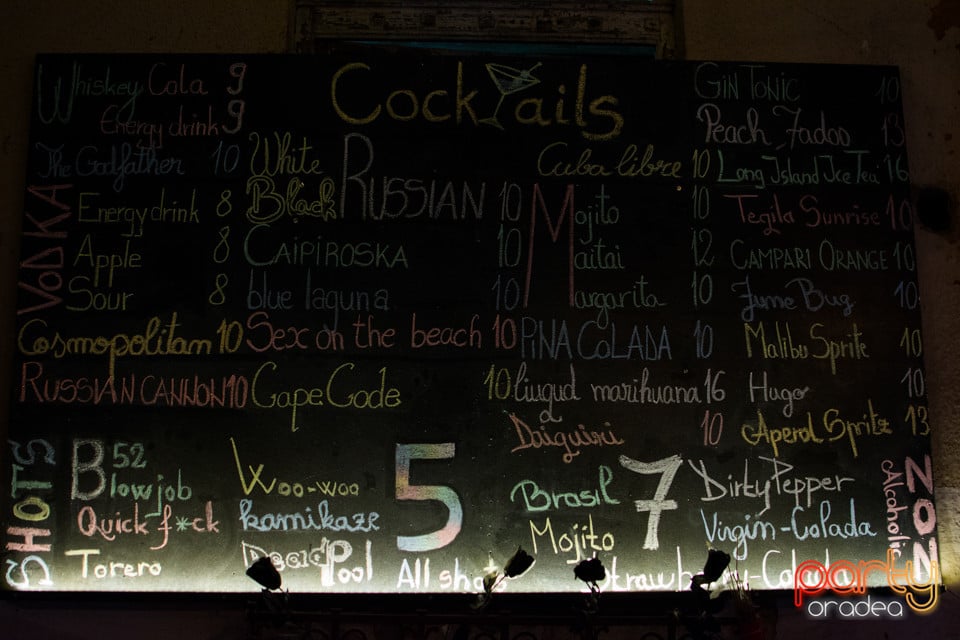 Cocktails
Whiskey Cola 9
Energy drink 9
The Godfather 10
VODKA
Energy drink 8
Apple 8
Sour 8
Cosmopolitan 10
RUSSIAN CANNON 10
White
Black
RUSSIAN 10
CAIPIROSKA 10
blue laguna 10
Sex on the beach 10
Cape Code 10
Cuba libre 10
Mojito 10
Maitai 12
Margarita 10
PiNA COLADA 10
liugud marihuana 16
Daiguiri 10
GIN TONIC 10
Peach Fados 13
Long Island Ice Tea 16
Tegila Sunrise 10
CAMPARI ORANGE 10
June Bug 10
Malibu Sprite 10
Hugo 10
Aperol Spritz 13
SHOTS
B52
Blowjob
Quick f*ck
Torero
Woo-woo
kamikaze
Dead Pool
5
All
Brasil
Mojito
7
Dirty Pepper
Virgin-Colada
NON
Alcoholic
party
oradea